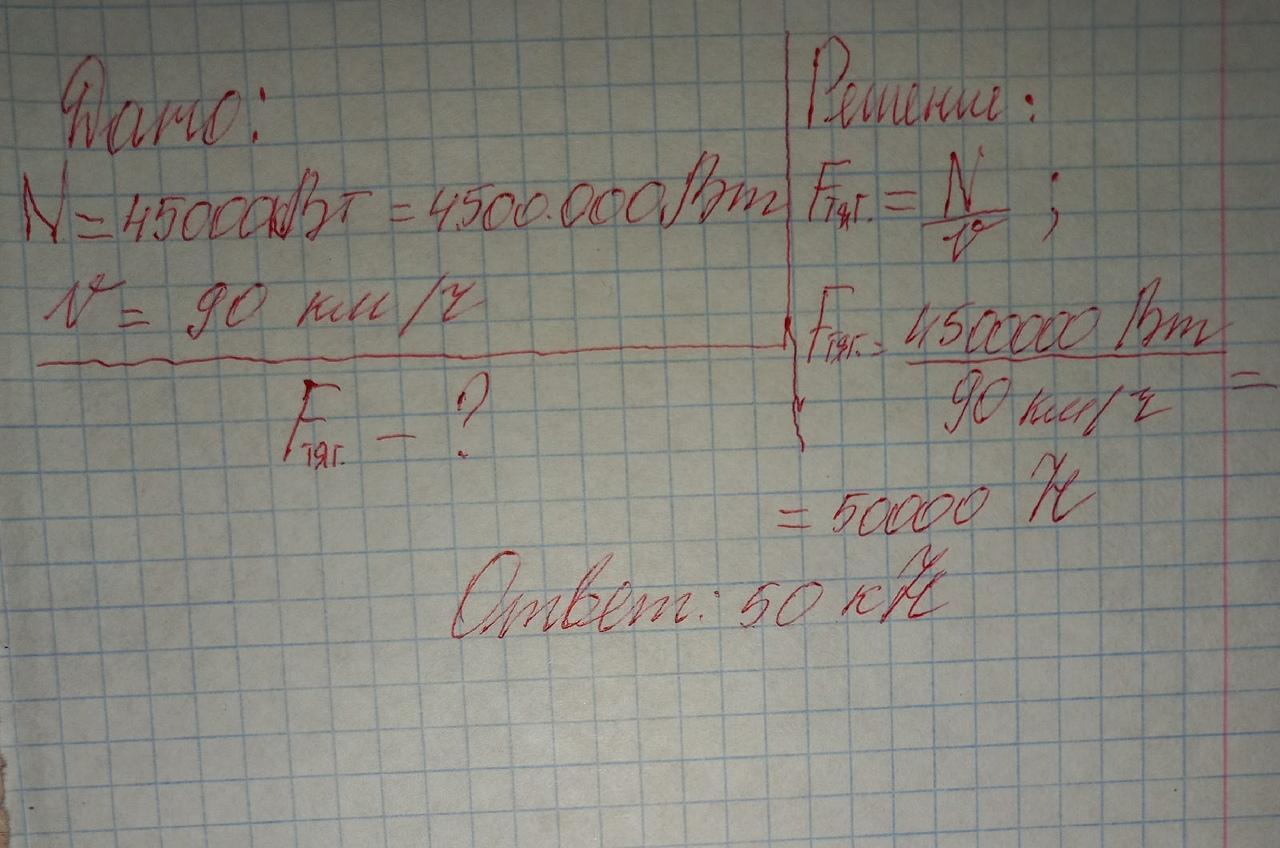 Дано:
N = 4500кВт = 4500.000 Вт
v = 90 км/ч
Fтяг. – ?
Решение:
Fтяг. = N/v ;
Fтяг. = 4500000 Вт / 90 км/ч =
= 50000 Н
Ответ: 50 кН